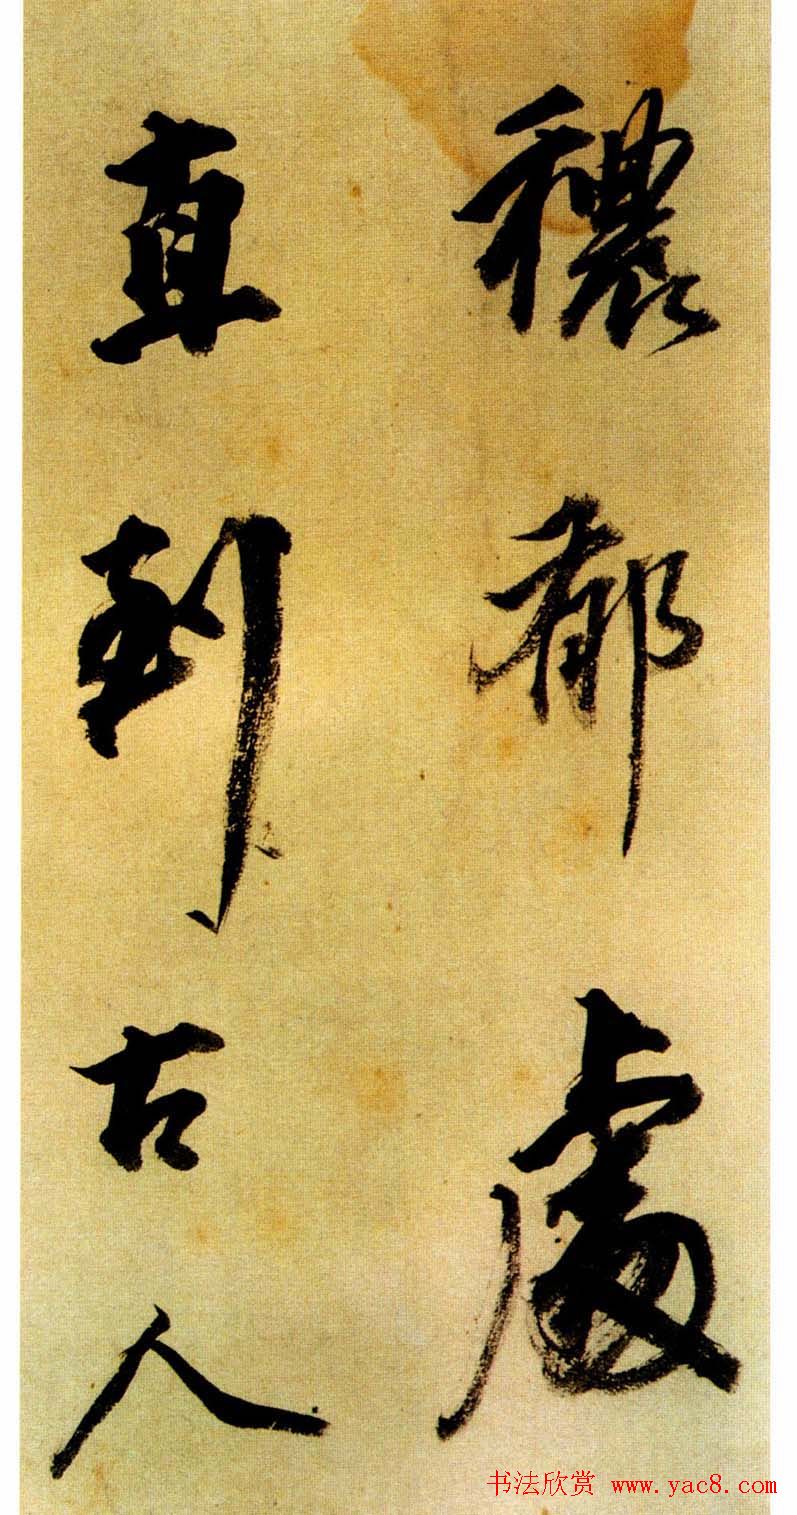 穠都處
直到古人
书法欣赏 www.yac8.com